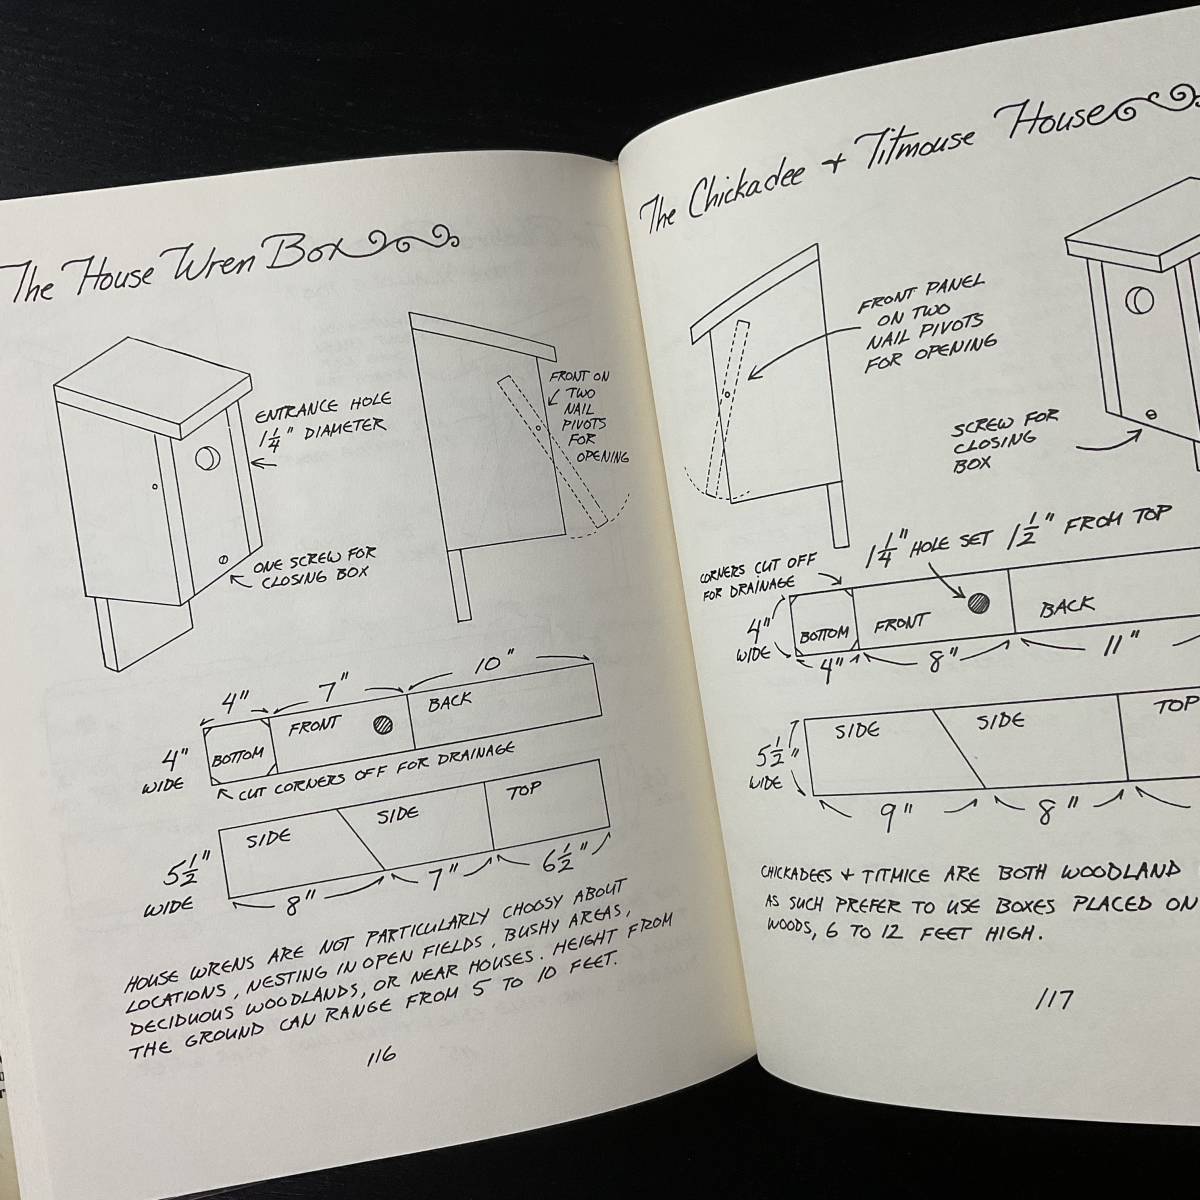 The House Wren Box
ENTRANCE HOLE
1 1/4" DIAMETER
FRONT ON
TWO
NAIL
PIVOTS
FOR
OPENING
ONE SCREW FOR
CLOSING BOX
4"
7"
10"
4"
WIDE
BOTTOM
FRONT
BACK
CUT CORNERS OFF FOR DRAINAGE
5 1/2"
WIDE
SIDE
SIDE
TOP
8"
7"
6 1/2"
HOUSE WRENS ARE NOT PARTICULARLY CHOOSY ABOUT
LOCATIONS, NESTING IN OPEN FIELDS, BUSHY AREAS,
DECIDUOUS WOODLANDS, OR NEAR HOUSES. HEIGHT FROM
THE GROUND CAN RANGE FROM 5 TO 10 FEET.
116
The Chickadee + Titmouse House
FRONT PANEL
ON TWO
NAIL PIVOTS
FOR OPENING
SCREW FOR
CLOSING
BOX
CORNERS CUT OFF
FOR DRAINAGE
1 1/4" HOLE SET 1 1/2" FROM TOP
4"
WIDE
BOTTOM
FRONT
BACK
4"
8"
11"
5 1/2"
WIDE
SIDE
SIDE
TOP
9"
8"
CHICKADEES + TITMICE ARE BOTH WOODLAND
AS SUCH PREFER TO USE BOXES PLACED ON
WOODS, 6 TO 12 FEET HIGH.
117